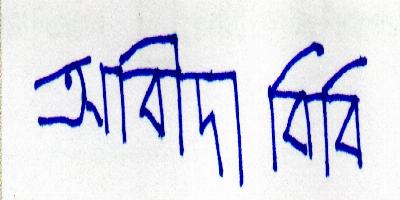 আবীদা বিবি